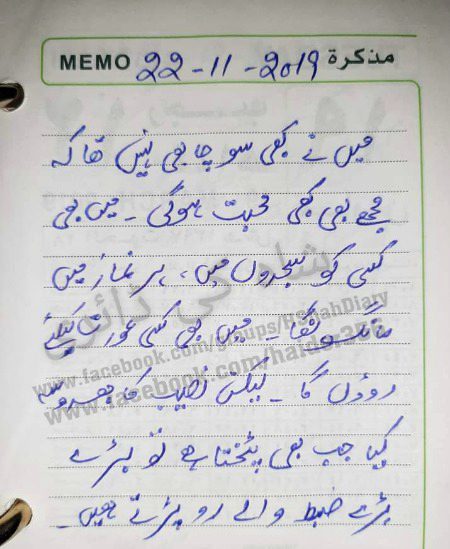 MEMO 22-11-2019 مذكرة
میں نے کبھی سوچا بھی نہیں تھا کہ
مجھے بھی کبھی محبت ہوگی ۔ میں بھی
کسی کو سجدوں میں ، ہر نماز میں
مانگوں گا ۔ میں بھی کسی عورت کیلئے
روؤں گا ۔ لیکن نصیب کا بھروسہ
کیا جب بھی پٹختا ہے تو بڑے
بڑے ضبط والے رو پڑتے ہیں ۔
شاہ کی ڈائری
www.facebook.com/groups/
www.facebook.com/